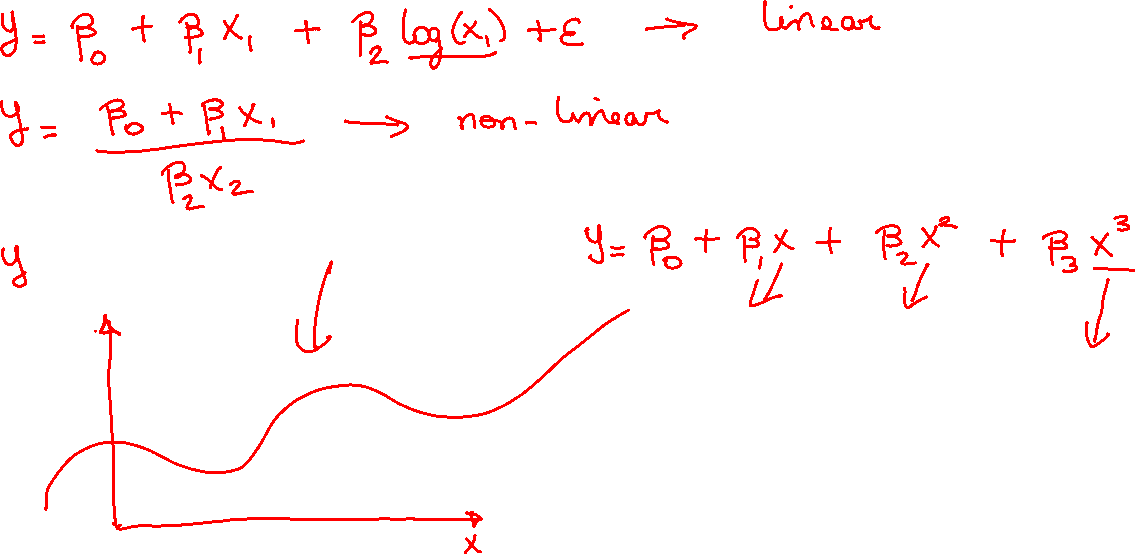 y = β₀ + β₁ x₁ + β₂ log(x₁) + ε → linear
y = (β₀ + β₁ x₁) / (β₂ x₂) → non-linear
y = β₀ + β₁ x + β₂ x² + β₃ x³
y
x